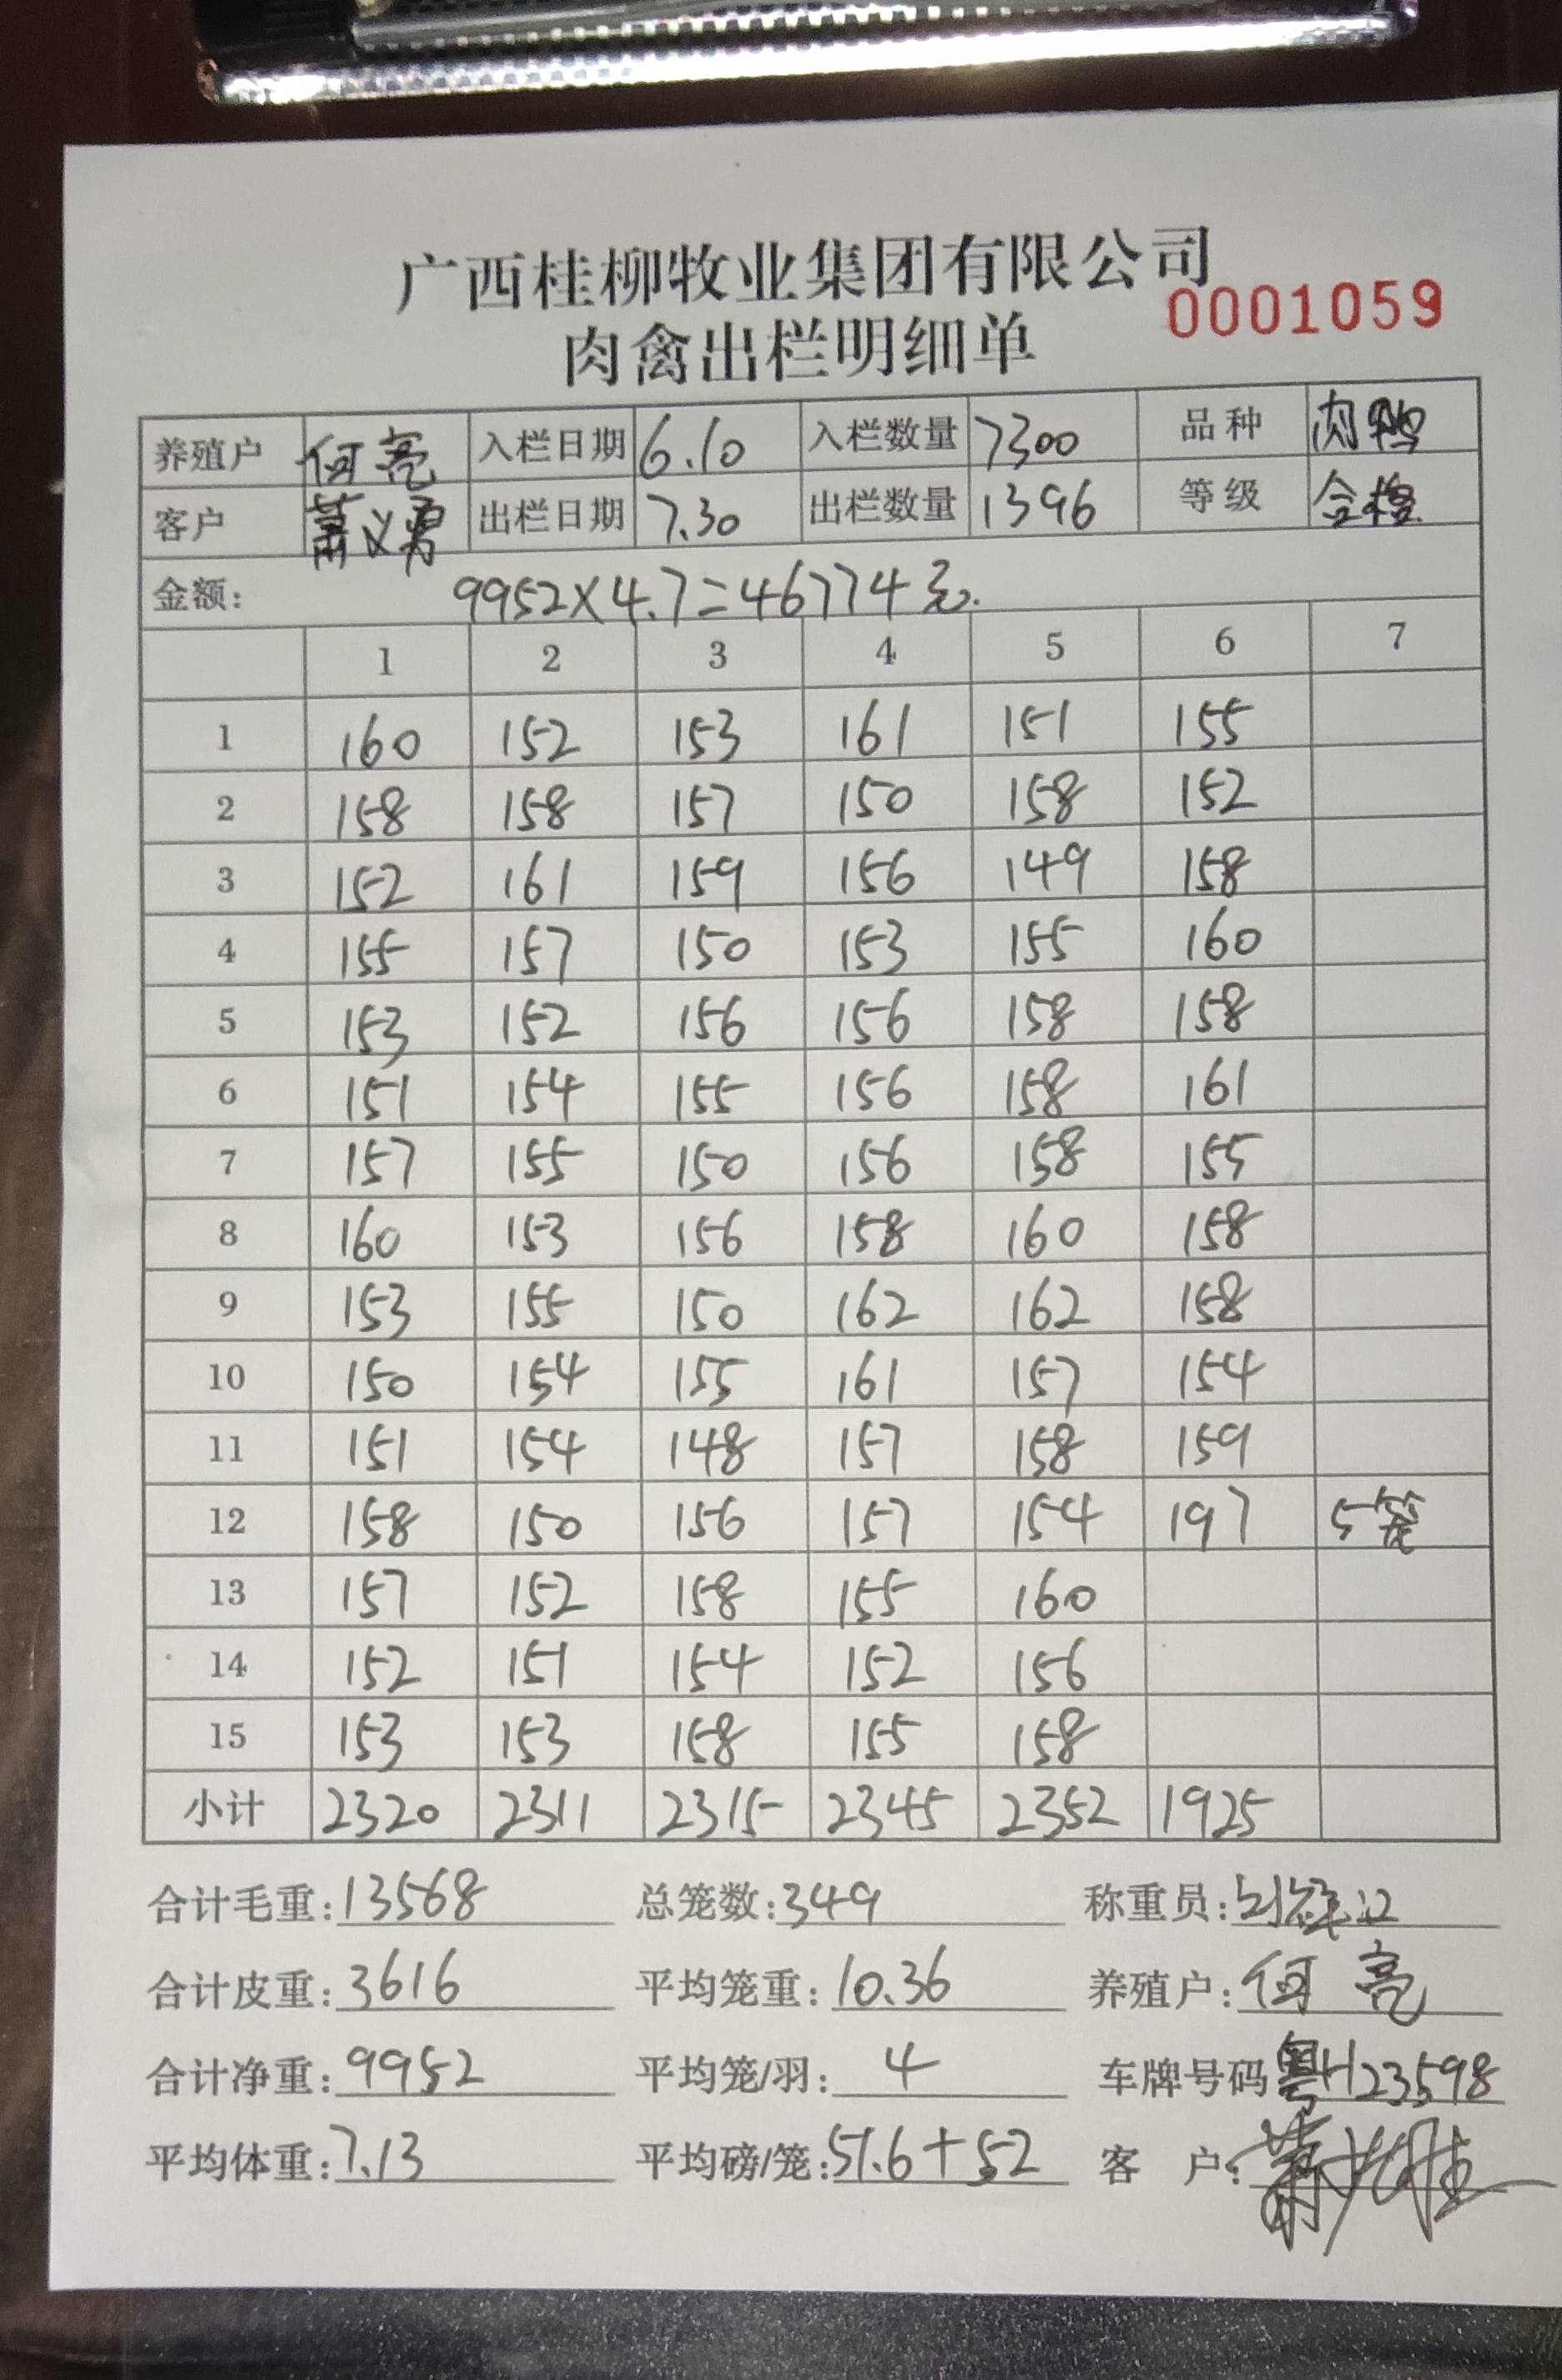 广西桂柳牧业集团有限公司
0001059
肉禽出栏明细单
养殖户 何亮 入栏日期 6.10 入栏数量 7300 品种 肉鸭
客户 萧义勇 出栏日期 7.30 出栏数量 1396 等级 合格
金额: 9952×4.7=46774元.
1 2 3 4 5 6 7
1 160 152 153 161 151 155
2 158 158 157 150 158 152
3 152 161 159 156 149 158
4 155 157 150 153 155 160
5 153 152 156 156 158 158
6 151 154 155 156 158 161
7 157 155 150 156 158 155
8 160 153 156 158 160 158
9 153 155 150 162 162 158
10 150 154 155 161 157 154
11 151 154 148 157 158 159
12 158 150 156 157 154 197 5笼
13 157 152 158 155 160
14 152 151 154 152 156
15 153 153 158 155 158
小计 2320 2311 2315 2345 2352 1925
合计毛重:13568 总笼数:349 称重员:
合计皮重:3616 平均笼重:10.36 养殖户:何亮
合计净重:9952 平均笼/羽:4 车牌号码 粤H23598
平均体重:7.13 平均磅/笼:51.6+52 客 户: